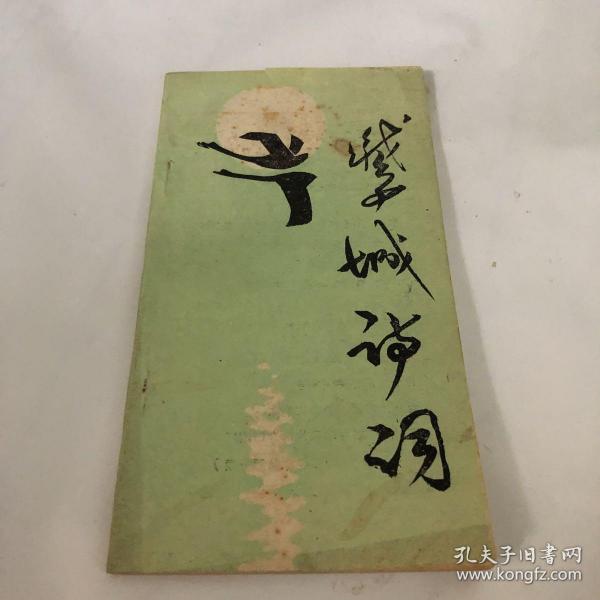 城诗词
孔夫子旧書网
www.kongfz.com